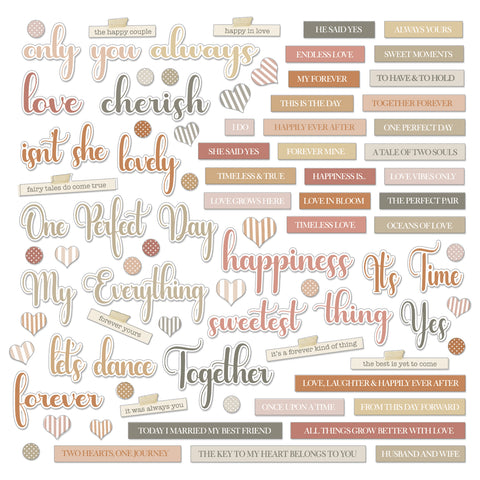 the happy couple
happy in love
HE SAID YES
ALWAYS YOURS
only you always
ENDLESS LOVE
SWEET MOMENTS
MY FOREVER
TO HAVE & TO HOLD
love cherish
THIS IS THE DAY
TOGETHER FOREVER
I DO
HAPPILY EVER AFTER
ONE PERFECT DAY
isnt she lovely
SHE SAID YES
FOREVER MINE
A TALE OF TWO SOULS
TIMELESS & TRUE
HAPPINESS IS..
LOVE VIBES ONLY
fairy tales do come true
LOVE GROWS HERE
LOVE IN BLOOM
THE PERFECT PAIR
One Perfect Day
TIMELESS LOVE
OCEANS OF LOVE
happiness
It's Time
My Everything
sweetest thing
Yes
forever yours
lets dance
Together
it's a forever kind of thing
the best is yet to come
forever
LOVE, LAUGHTER & HAPPILY EVER AFTER
it was always you
ONCE UPON A TIME
FROM THIS DAY FORWARD
TODAY I MARRIED MY BEST FRIEND
ALL THINGS GROW BETTER WITH LOVE
TWO HEARTS, ONE JOURNEY
THE KEY TO MY HEART BELONGS TO YOU
HUSBAND AND WIFE